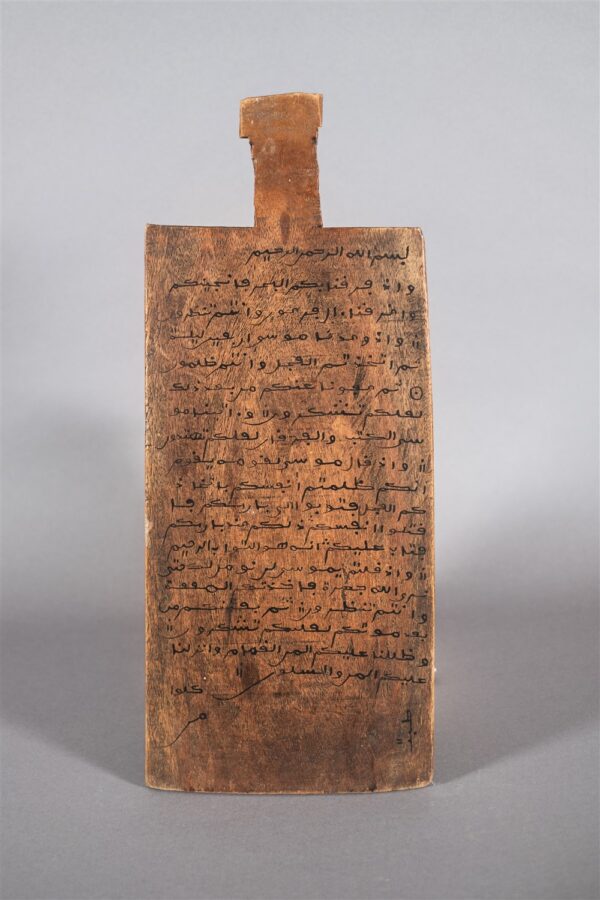 بسم الله الرحمن الرحيم
واذ فرقنا بكم البحر فانجينكم
واغرقنا ءال فرعون وانتم تنظرو
ن واذ وعدنا موسى اربعين
ثم اتخذتم العجل وانتم ظلمون
ثم عفونا عنكم من بعد ذلك
لعلكم تشكرون واذ اتينا مو
سى الكتب والفرقان لعلكم تهتدون
واذ قال موسى لقومه يقوم
انكم ظلمتم انفسكم باتخاذ
كم العجل فتوبوا الى باريكم فا
قتلوا انفسكم ذلكم عند باريكم
فتاب عليكم انه هو التواب الرحيم
واذ قلتم يموسى لن نومن لك حتى
نرى الله جهرة فاخذتكم الصعقة
وانتم تنظرون ثم بعثنكم من
بعد موتكم لعلكم تشكرون
وظللنا عليكم المن الغمام وانزلنا
عليكم المن والسلوى
كلوا
من